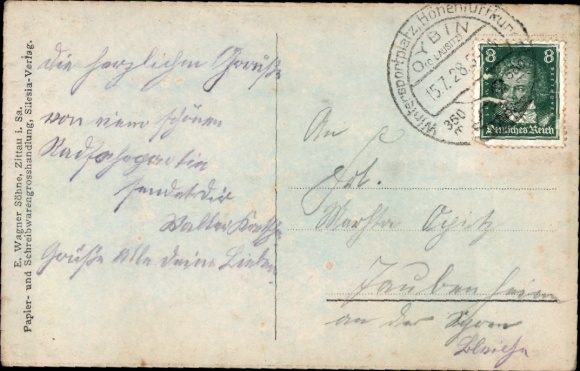 E. Wagner Söhne, Zittau i. Sa.
Papier- und Schreibwarengrosshandlung, Silesia-Verlag.
die herzlichen Grüße
von einer schönen
Radfahrpartie
sendet dir
Walter
Grüße alle deine Lieben
Wintersportplatz, Höhenluftkurort
OYBIN
15.7.28.
350
8 8
Deutsches Reich
An
Frl.
Martha Opitz
Taubenheim
an der Spree
Bleiche